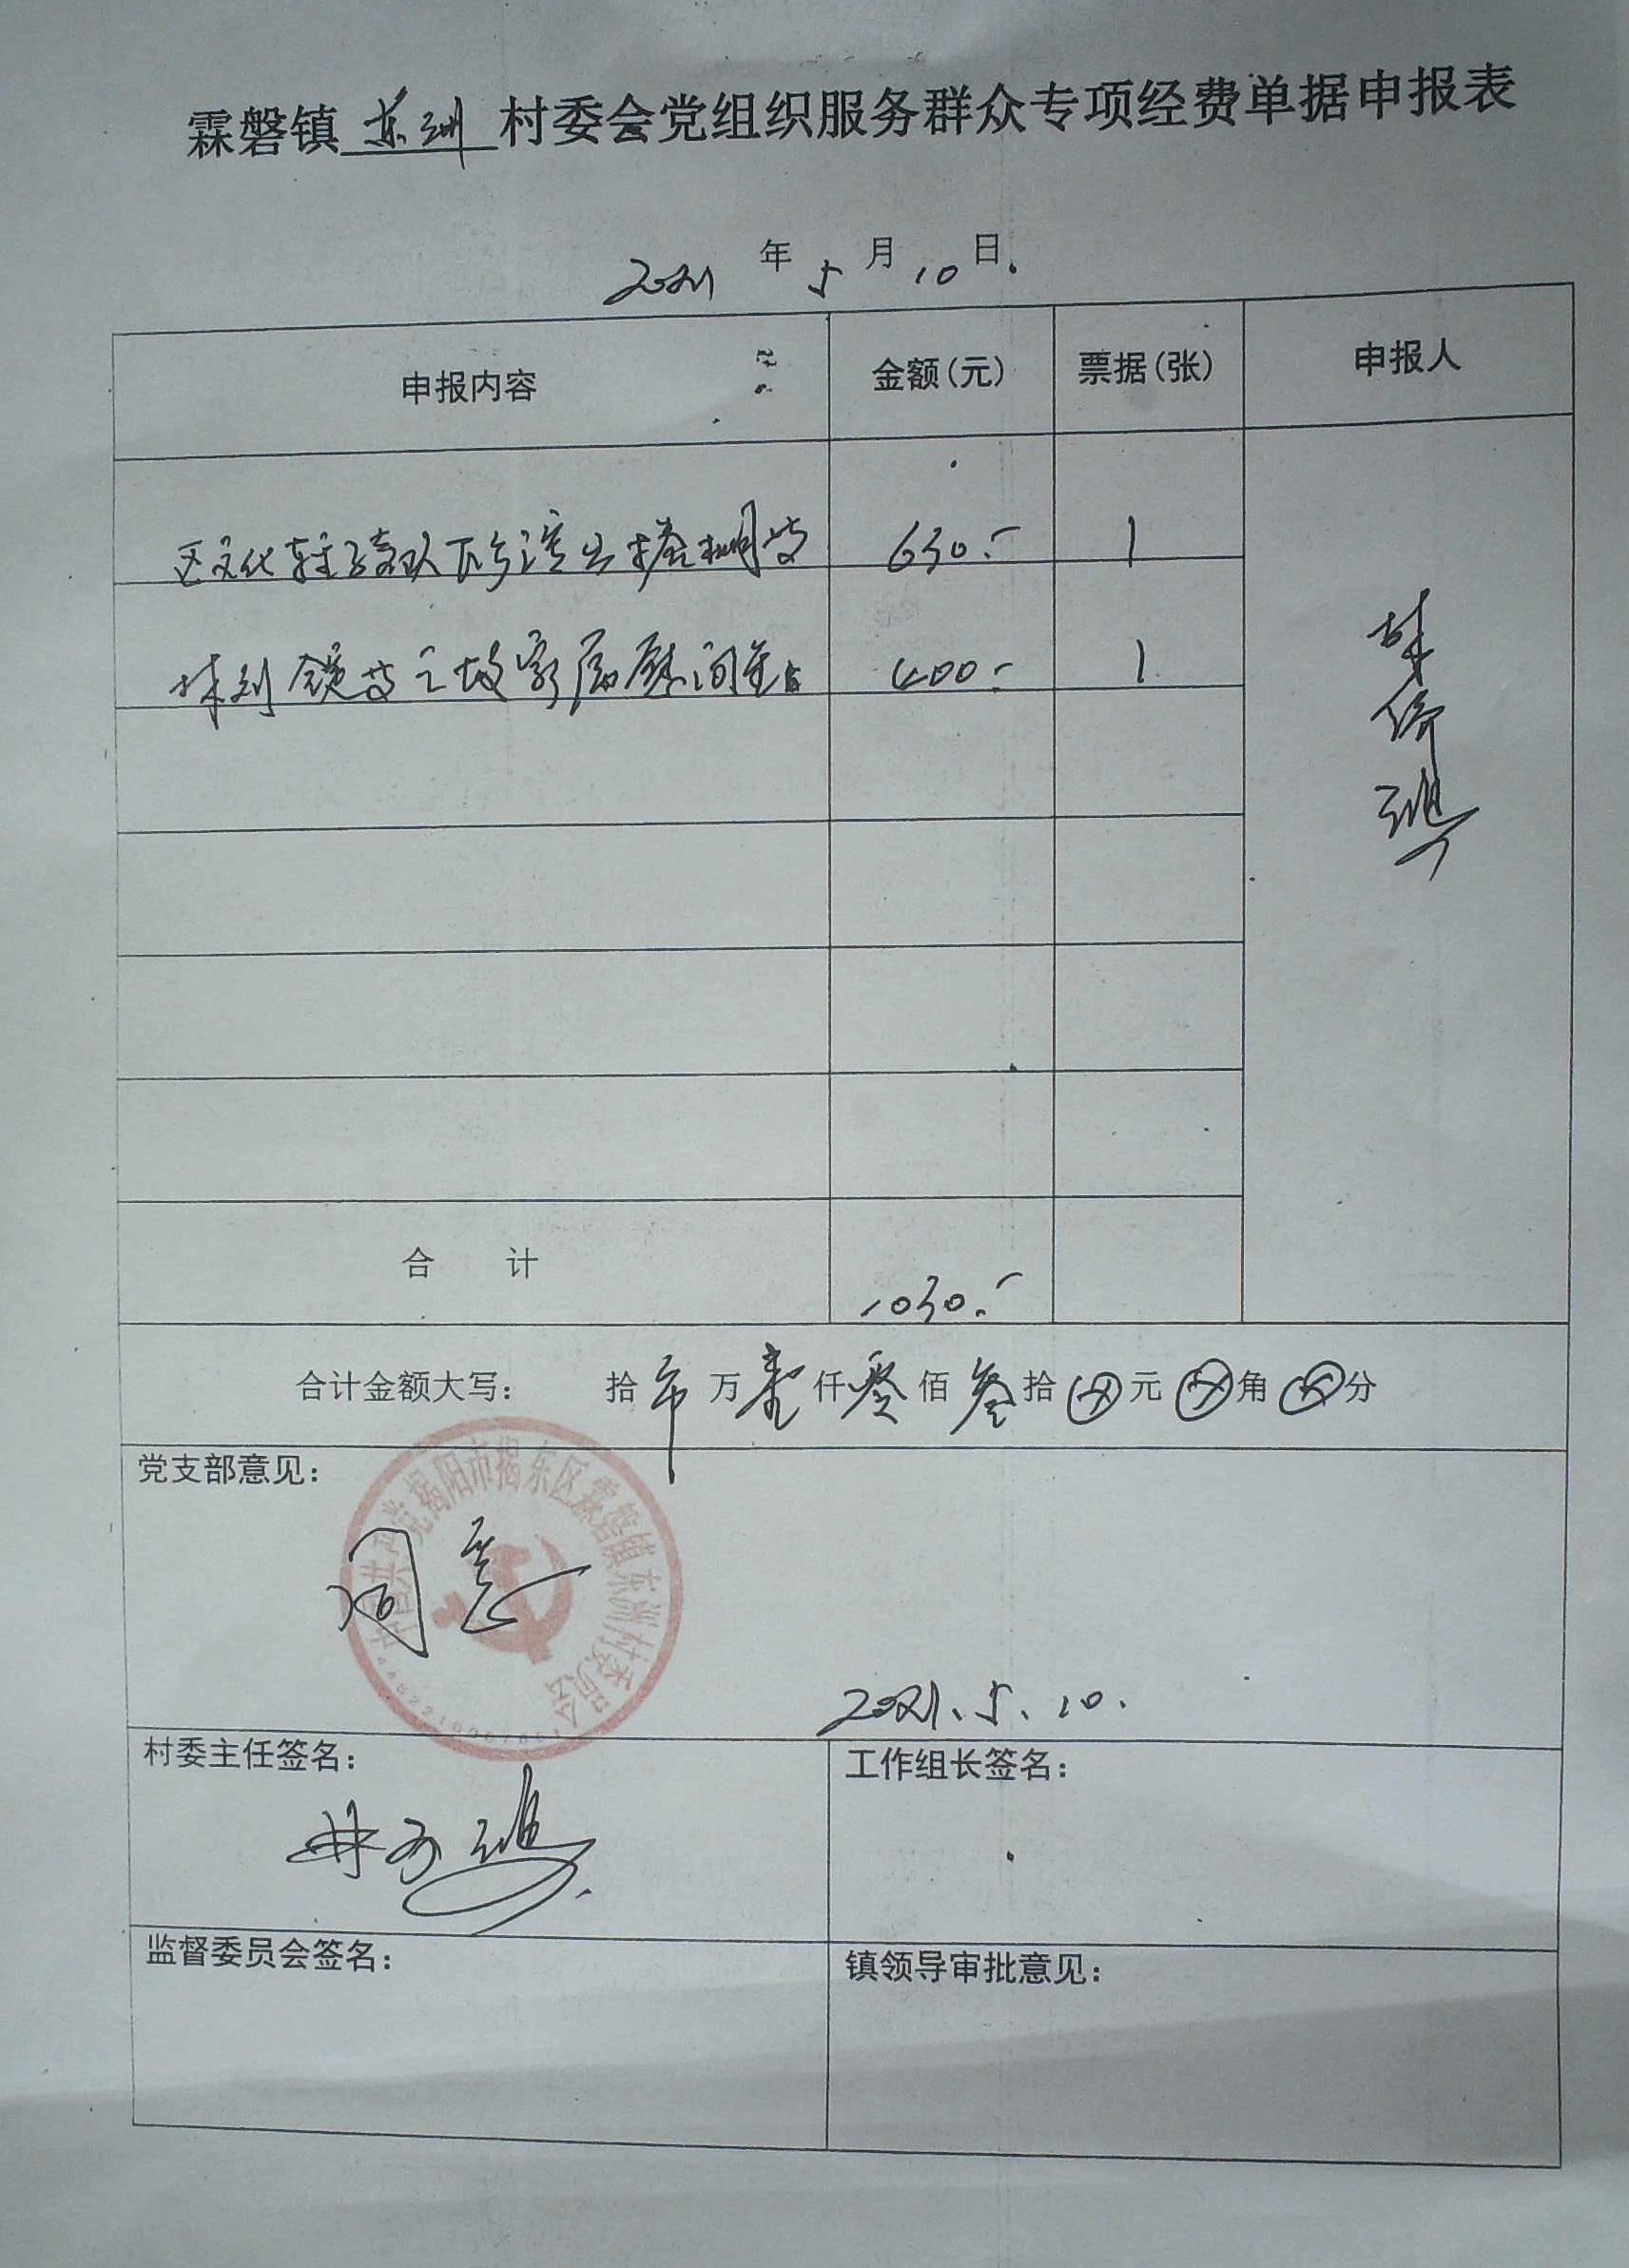 霖磐镇东洲村委会党组织服务群众专项经费单据申报表
2021年5月10日.
申报内容 金额(元) 票据(张) 申报人
区文化轻骑队下乡演出搭棚费 630.- 1
林 故家属慰问金 400.- 1
林
合 计 1030.-
合计金额大写: 拾 币 万 壹 仟 零 佰 叁 拾 ⊗ 元 ⊗ 角 ⊗ 分
党支部意见:
同意
中国共产党揭阳市揭东区霖磐镇东洲村委员会
2021.5.10.
村委主任签名: 工作组长签名:
林
监督委员会签名: 镇领导审批意见: